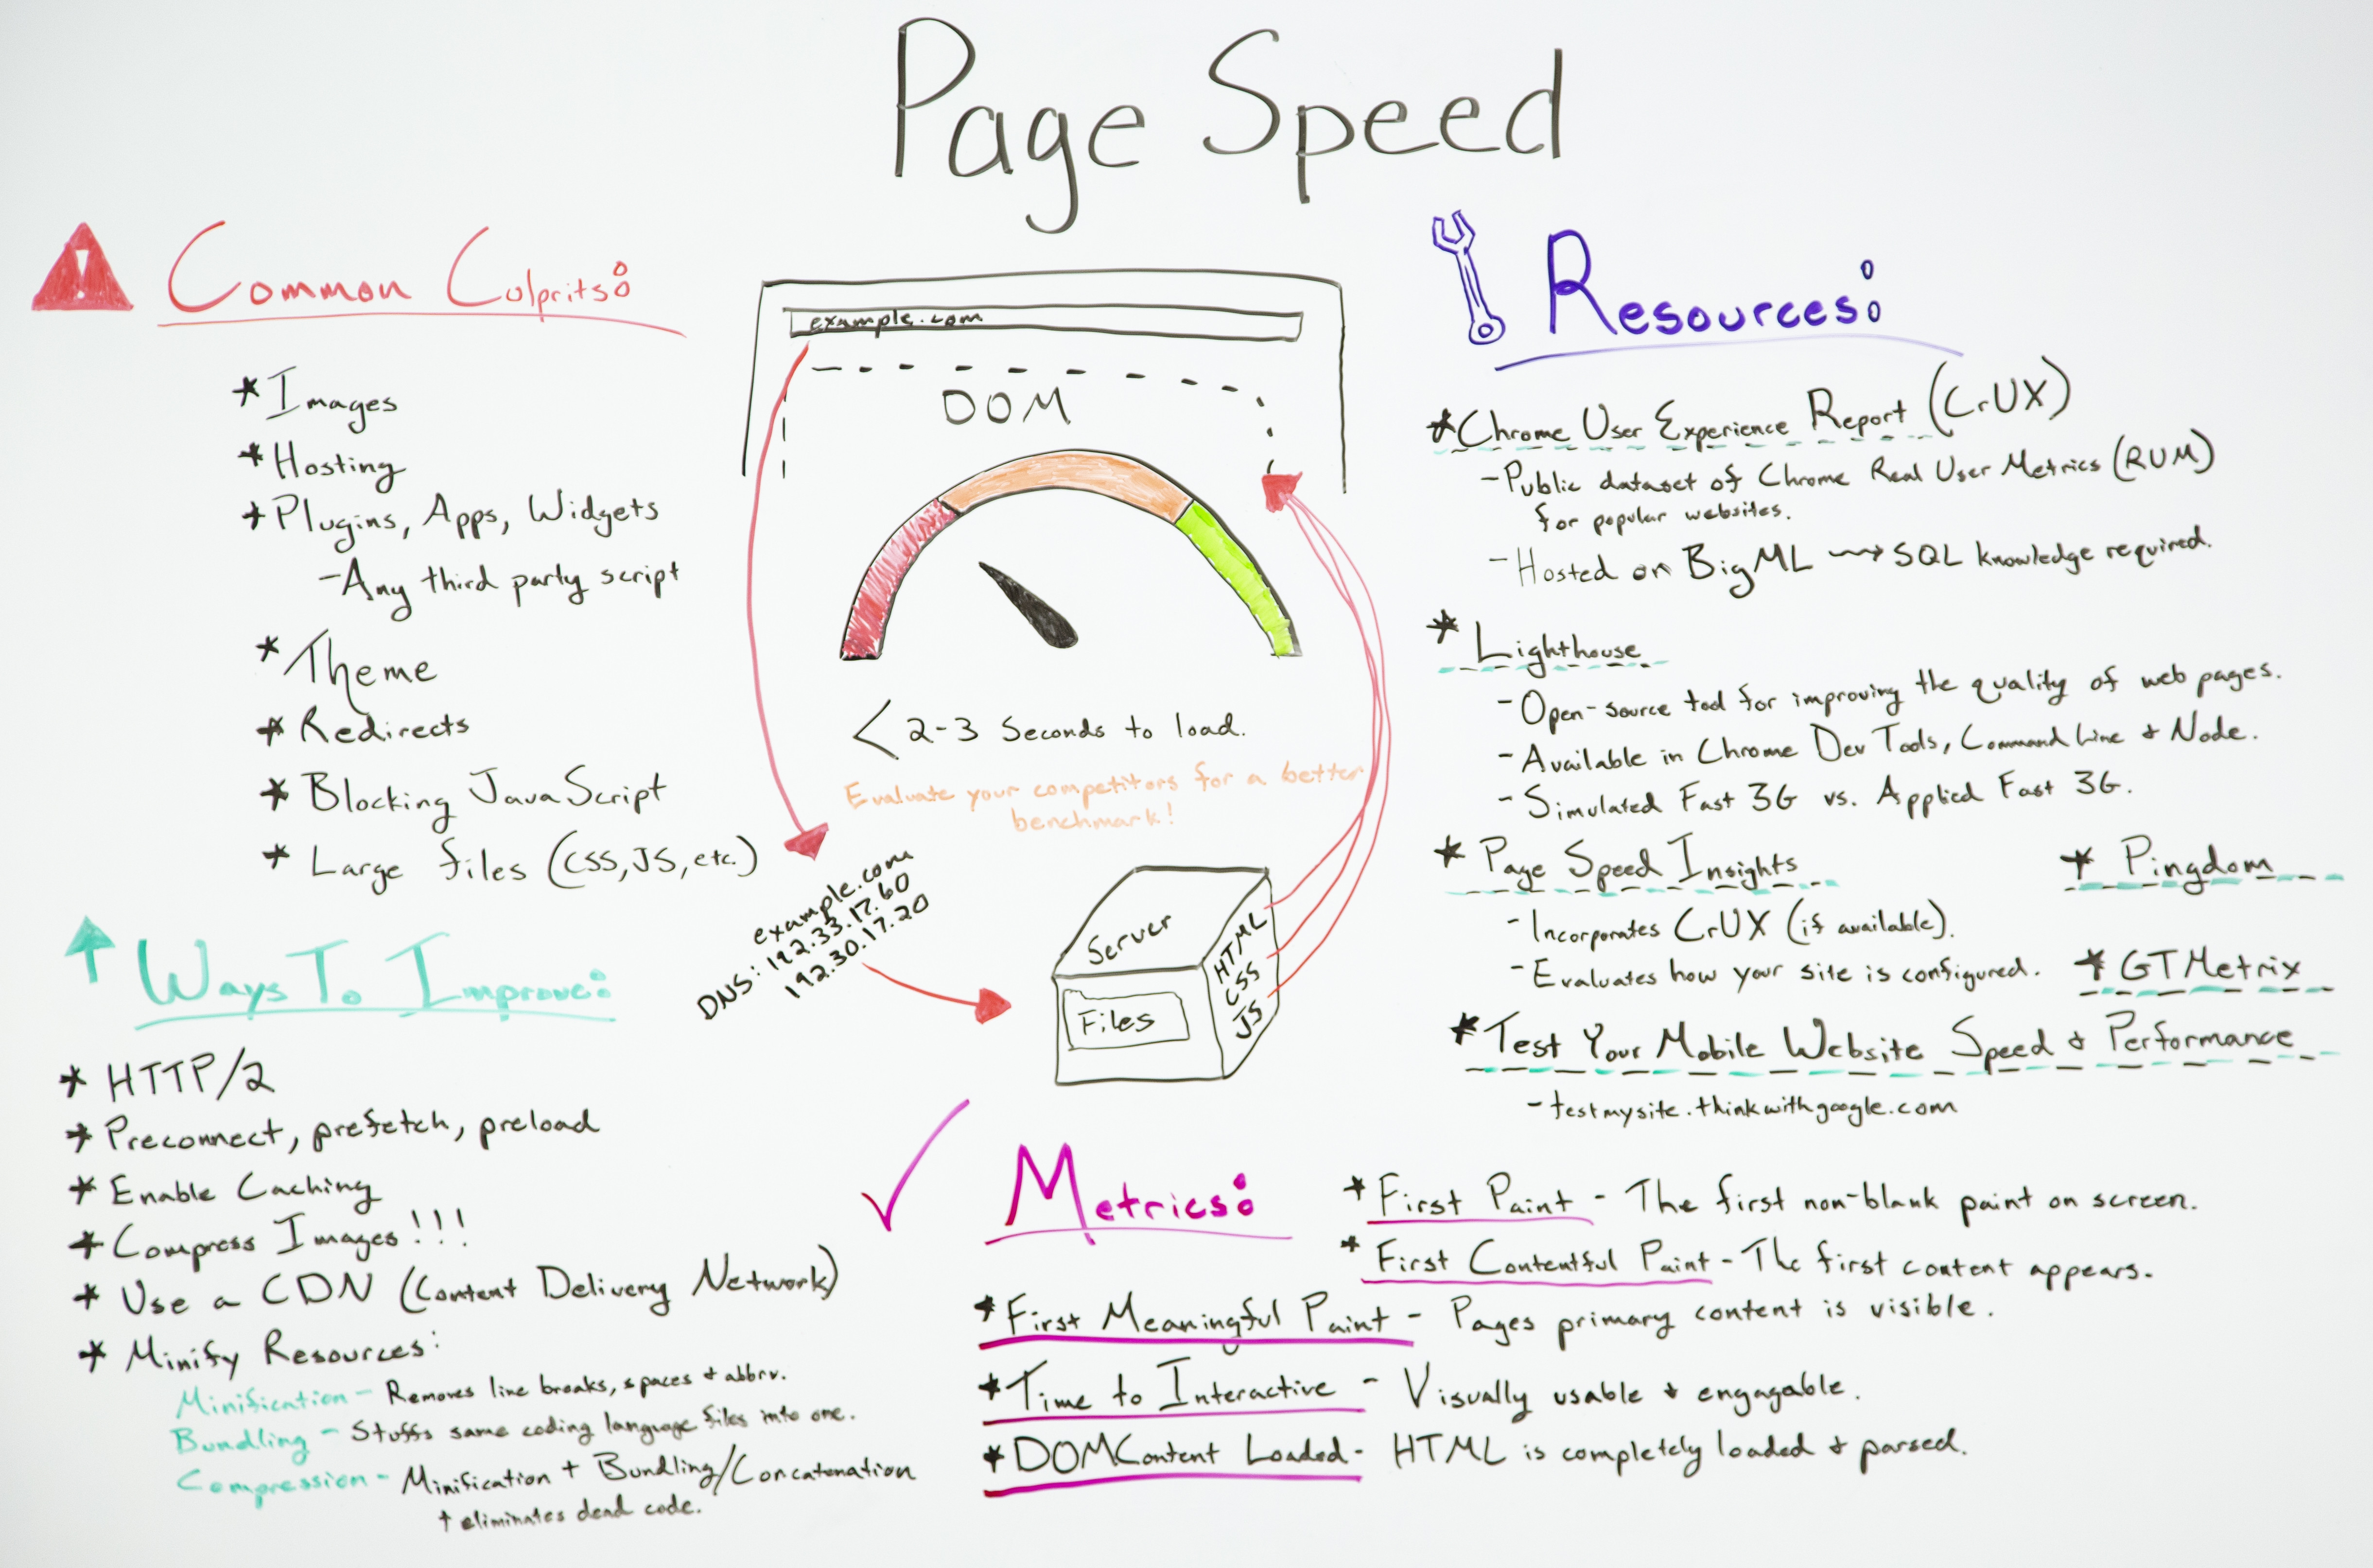 Page Speed
Common Culprits:
* Images
* Hosting
* Plugins, Apps, Widgets
- Any third party script
* Theme
* Redirects
* Blocking JavaScript
* Large files (CSS, JS, etc.)
Ways To Improve:
* HTTP/2
* Preconnect, prefetch, preload
* Enable Caching
* Compress Images!!!
* Use a CDN (Content Delivery Network)
* Minify Resources:
Minification - Removes line breaks, spaces + abbrv.
Bundling - Stuffs same coding language files into one.
Compression - Minification + Bundling/Concatenation
+ eliminates dead code.
example.com
DOM
< 2-3 Seconds to load.
Evaluate your competitors for a better
benchmark!
example.com
DNS: 192.33.17.60
192.30.17.20
Server
Files
HTML
CSS
JS
Resources:
* Chrome User Experience Report (CrUX)
- Public dataset of Chrome Real User Metrics (RUM)
for popular websites.
- Hosted on BigML → SQL knowledge required.
* Lighthouse
- Open-source tool for improving the quality of web pages.
- Available in Chrome Dev Tools, Command Line + Node.
- Simulated Fast 3G vs. Applied Fast 3G.
* Page Speed Insights
- Incorporates CrUX (if available).
- Evaluates how your site is configured.
* Pingdom
* GTMetrix
* Test Your Mobile Website Speed + Performance
- testmysite.thinkwithgoogle.com
Metrics:
* First Paint - The first non-blank paint on screen.
* First Contentful Paint - The first content appears.
* First Meaningful Paint - Pages primary content is visible.
* Time to Interactive - Visually usable + engagable.
* DOMContent Loaded - HTML is completely loaded + parsed.